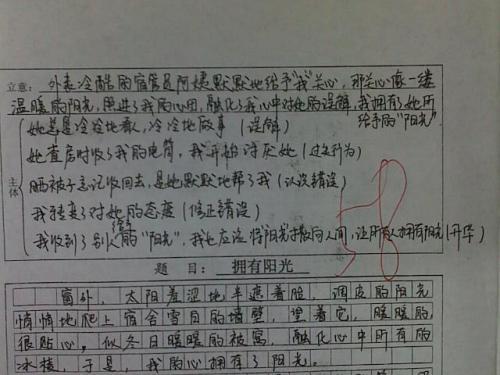 立意：外表冷酷的宿管员阿姨默默地给予"我"关心，那关心像一缕
温暖的阳光，照进了我的心田，融化了我心中对她的误解，我拥有她所
给予的"阳光"。
她总是冷冷地看人，冷冷地做事（误解）
她查房时收了我的电筒，我开始讨厌她（过激行为）
主体
晒被子忘记收回去，是她默默地帮了我（认识错误）
我转变了对她的态度（修正错误）
我收到了别人给予的"阳光"，我也应该将阳光洒向人间，让所有人拥有阳光（升华）
58
题目：拥有阳光
窗外，太阳羞涩地半遮着脸，调皮的阳光
悄悄地爬上宿舍雪白的墙壁，望着它，暖暖的，
很贴心，似冬日暖暖的被窝，融化心中所有的
冰棱，于是，我的心拥有了阳光。